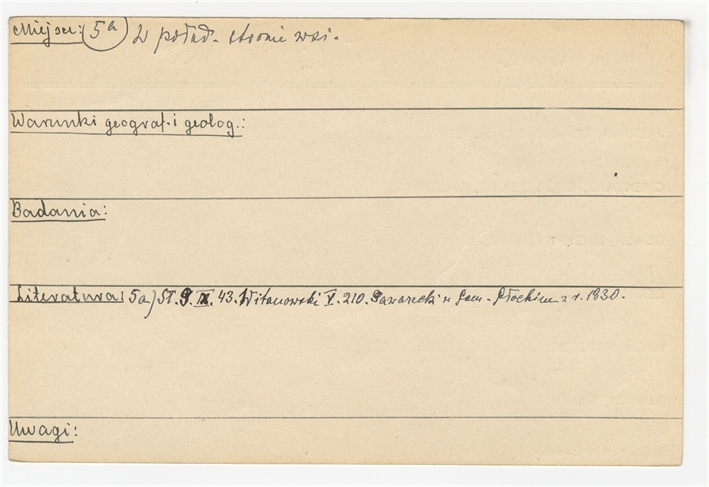 Miejsce: 5a W połud. stronie wsi.
Warunki geograf. i geolog.:
Badania:
Literatura: 5a) St. G. IX. 43. Witanowski V. 210. Gawarecki w Pam. Płockim z r. 1830.
Uwagi: